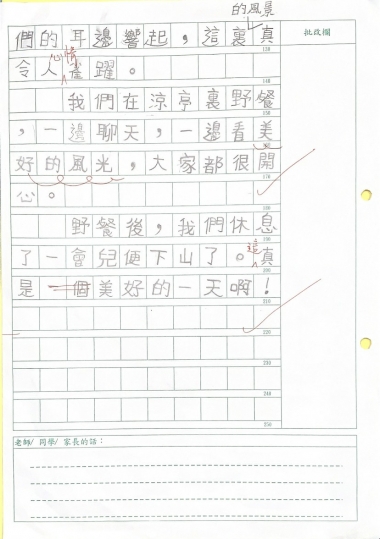 的風景
們的耳邊響起，這裏真
批改欄
130
心情
令人雀躍。
140
我們在涼亭裏野餐
150
，一邊聊天，一邊看美
160
好的風光，大家都很開
170
心。
180
野餐後，我們休息
190
了一會兒便下山了。這真
200
是一個美好的一天啊！
210
220
230
240
250
老師/ 同學/ 家長的話：